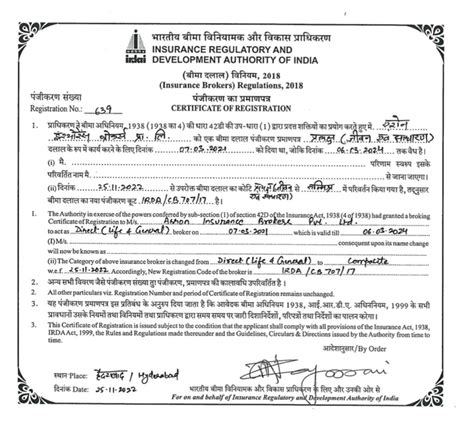 भारतीय बीमा विनियामक और विकास प्राधिकरण
INSURANCE REGULATORY AND
DEVELOPMENT AUTHORITY OF INDIA
irdai
(बीमा दलाल) विनियम, 2018
(Insurance Brokers) Regulations, 2018
पंजीकरण संख्या
पंजीकरण का प्रमाणपत्र
Registration No.: 639
CERTIFICATE OF REGISTRATION
1. प्राधिकरण ने बीमा अधिनियम, 1938 (1938 का 4) की धारा 42डी की उप-धारा (1) द्वारा प्रदत्त शक्तियों का प्रयोग करते हुए मे.
प्रा. लि. को एक बीमा दलाल पंजीकरण प्रमाणपत्र प्रत्यक्ष (जीवन एवं साधारण)
दलाल के रूप में कार्य करने के लिए दिनांक 07-03-2021 को दिया था, जोकि दिनांक 06-03-2024 तक वैध है।
(i) मै. परिणाम स्वरूप इसके
परिवर्तित नाम मै. से जाना जाएगा।
(ii) दिनांक 25-11-2022 से उपरोक्त बीमा दलाल का में परिवर्तन किया गया है, तद्नुसार
बीमा दलाल का नया पंजीकरण कूट IRDA/CB 707/17 है।
1. The Authority in exercise of the powers conferred by sub-section (1) of section 42D of the Insurance Act, 1938 (4 of 1938) had granted a broking
Certificate of Registration to M/s. Insurance Brokers Pvt. Ltd.
to act as Direct (Life & General) broker on 07-03-2021 which is valid till 06-03-2024
(I) M/s consequent upon its name change
will now be known as
(ii) The Category of above insurance broker is changed from Direct (Life & General) to Composite
w.e.f. 25-11-2022. Accordingly, New Registration Code of the broker is IRDA/CB 707/17
2. अन्य सभी विवरण जैसे पंजीकरण संख्या तथा पंजीकरण, प्रमाणपत्र की कालावधि अपरिवर्तित है।
2. All other particulars viz. Registration Number and period of Certificate of Registration remains unchanged.
3. यह पंजीकरण प्रमाणपत्र इस प्रतिबंध के अनुरूप दिया जाता है कि आवेदक बीमा अधिनियम, 1938, आई.आर.डी.ए. अधिनियम, 1999 के सभी
प्रावधानों उसके नियमों तथा विनियमों तथा प्राधिकरण द्वारा समय समय पर जारी दिशानिर्देशों, परिपत्रों तथा निर्देशों का पालन करेगा।
3. This Certificate of Registration is issued subject to the condition that the applicant shall comply with all provisions of the Insurance Act, 1938,
IRDA Act, 1999, the Rules and Regulations made thereunder and the Guidelines, Circulars & Directions issued by the Authority from time to
time.
आदेशानुसार/By Order
स्थान Place: हैदराबाद/Hyderabad
दिनांक Date: 25-11-2022
भारतीय बीमा विनियामक और विकास प्राधिकरण के लिए और उनकी ओर से
For and on behalf of Insurance Regulatory and Development Authority of India